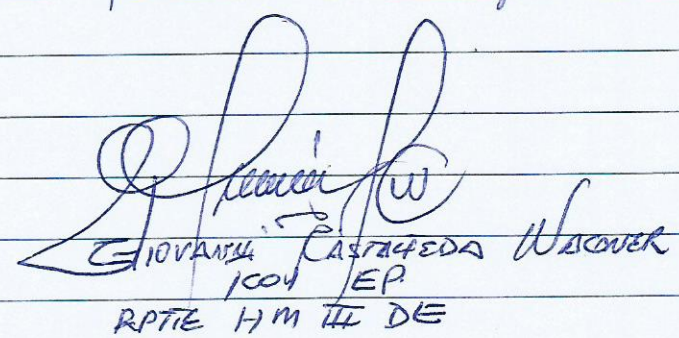 W
GIOVANNI CASTAÑEDA WAGNER
EP.
RPTTE HM III DE